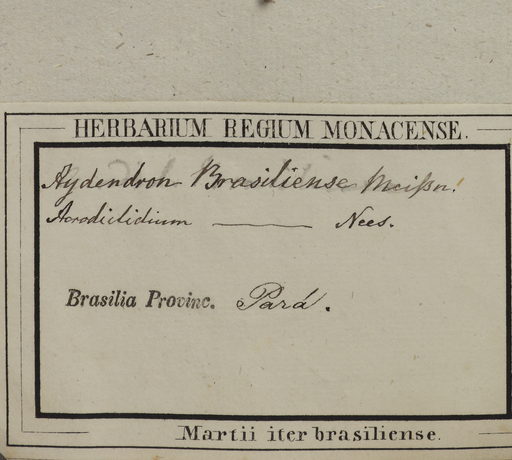 HERBARIUM REGIUM MONACENSE.
Aydendron Brasiliense Meißn!
Acrodiclidium ——— Nees.
Brasilia Provinc. Pará.
Martii iter brasiliense.